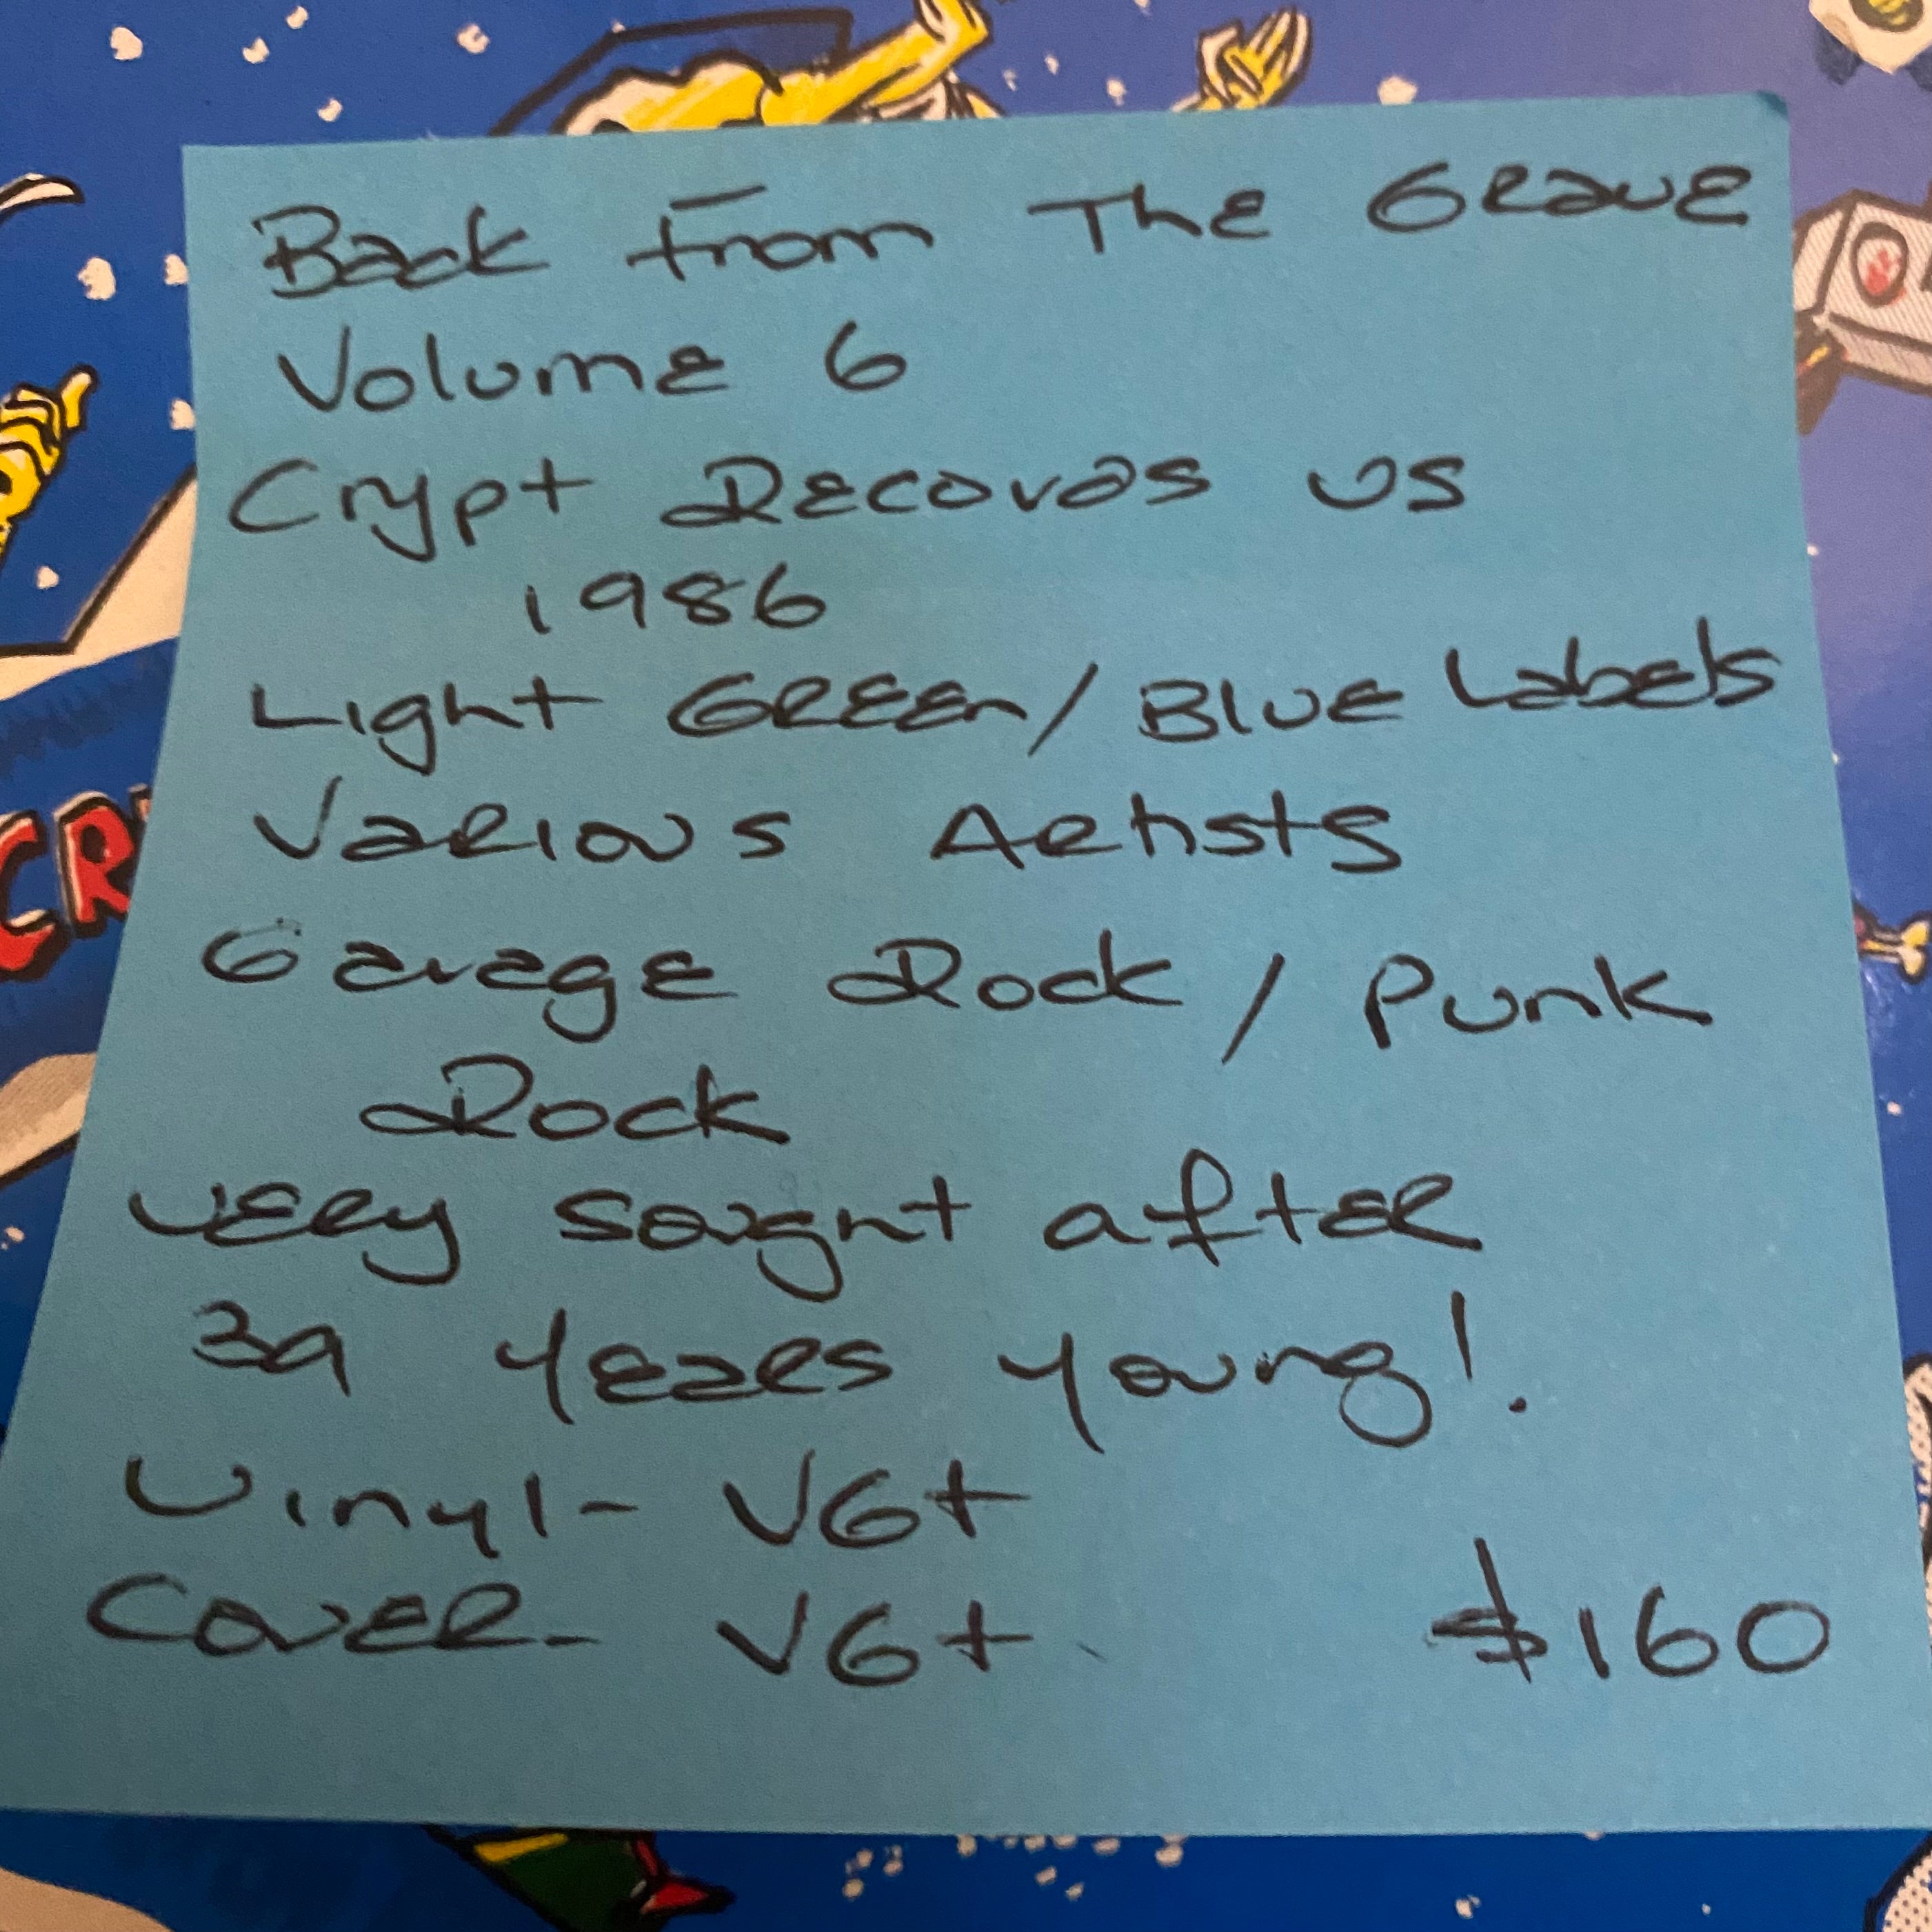 Back From The Grave
Volume 6
Crypt Records US
1986
Light Green/Blue Labels
Various Artists
Garage Rock / Punk
Rock
very sought after
39 years young!
Vinyl- VG+
Cover- VG+ $160
CR